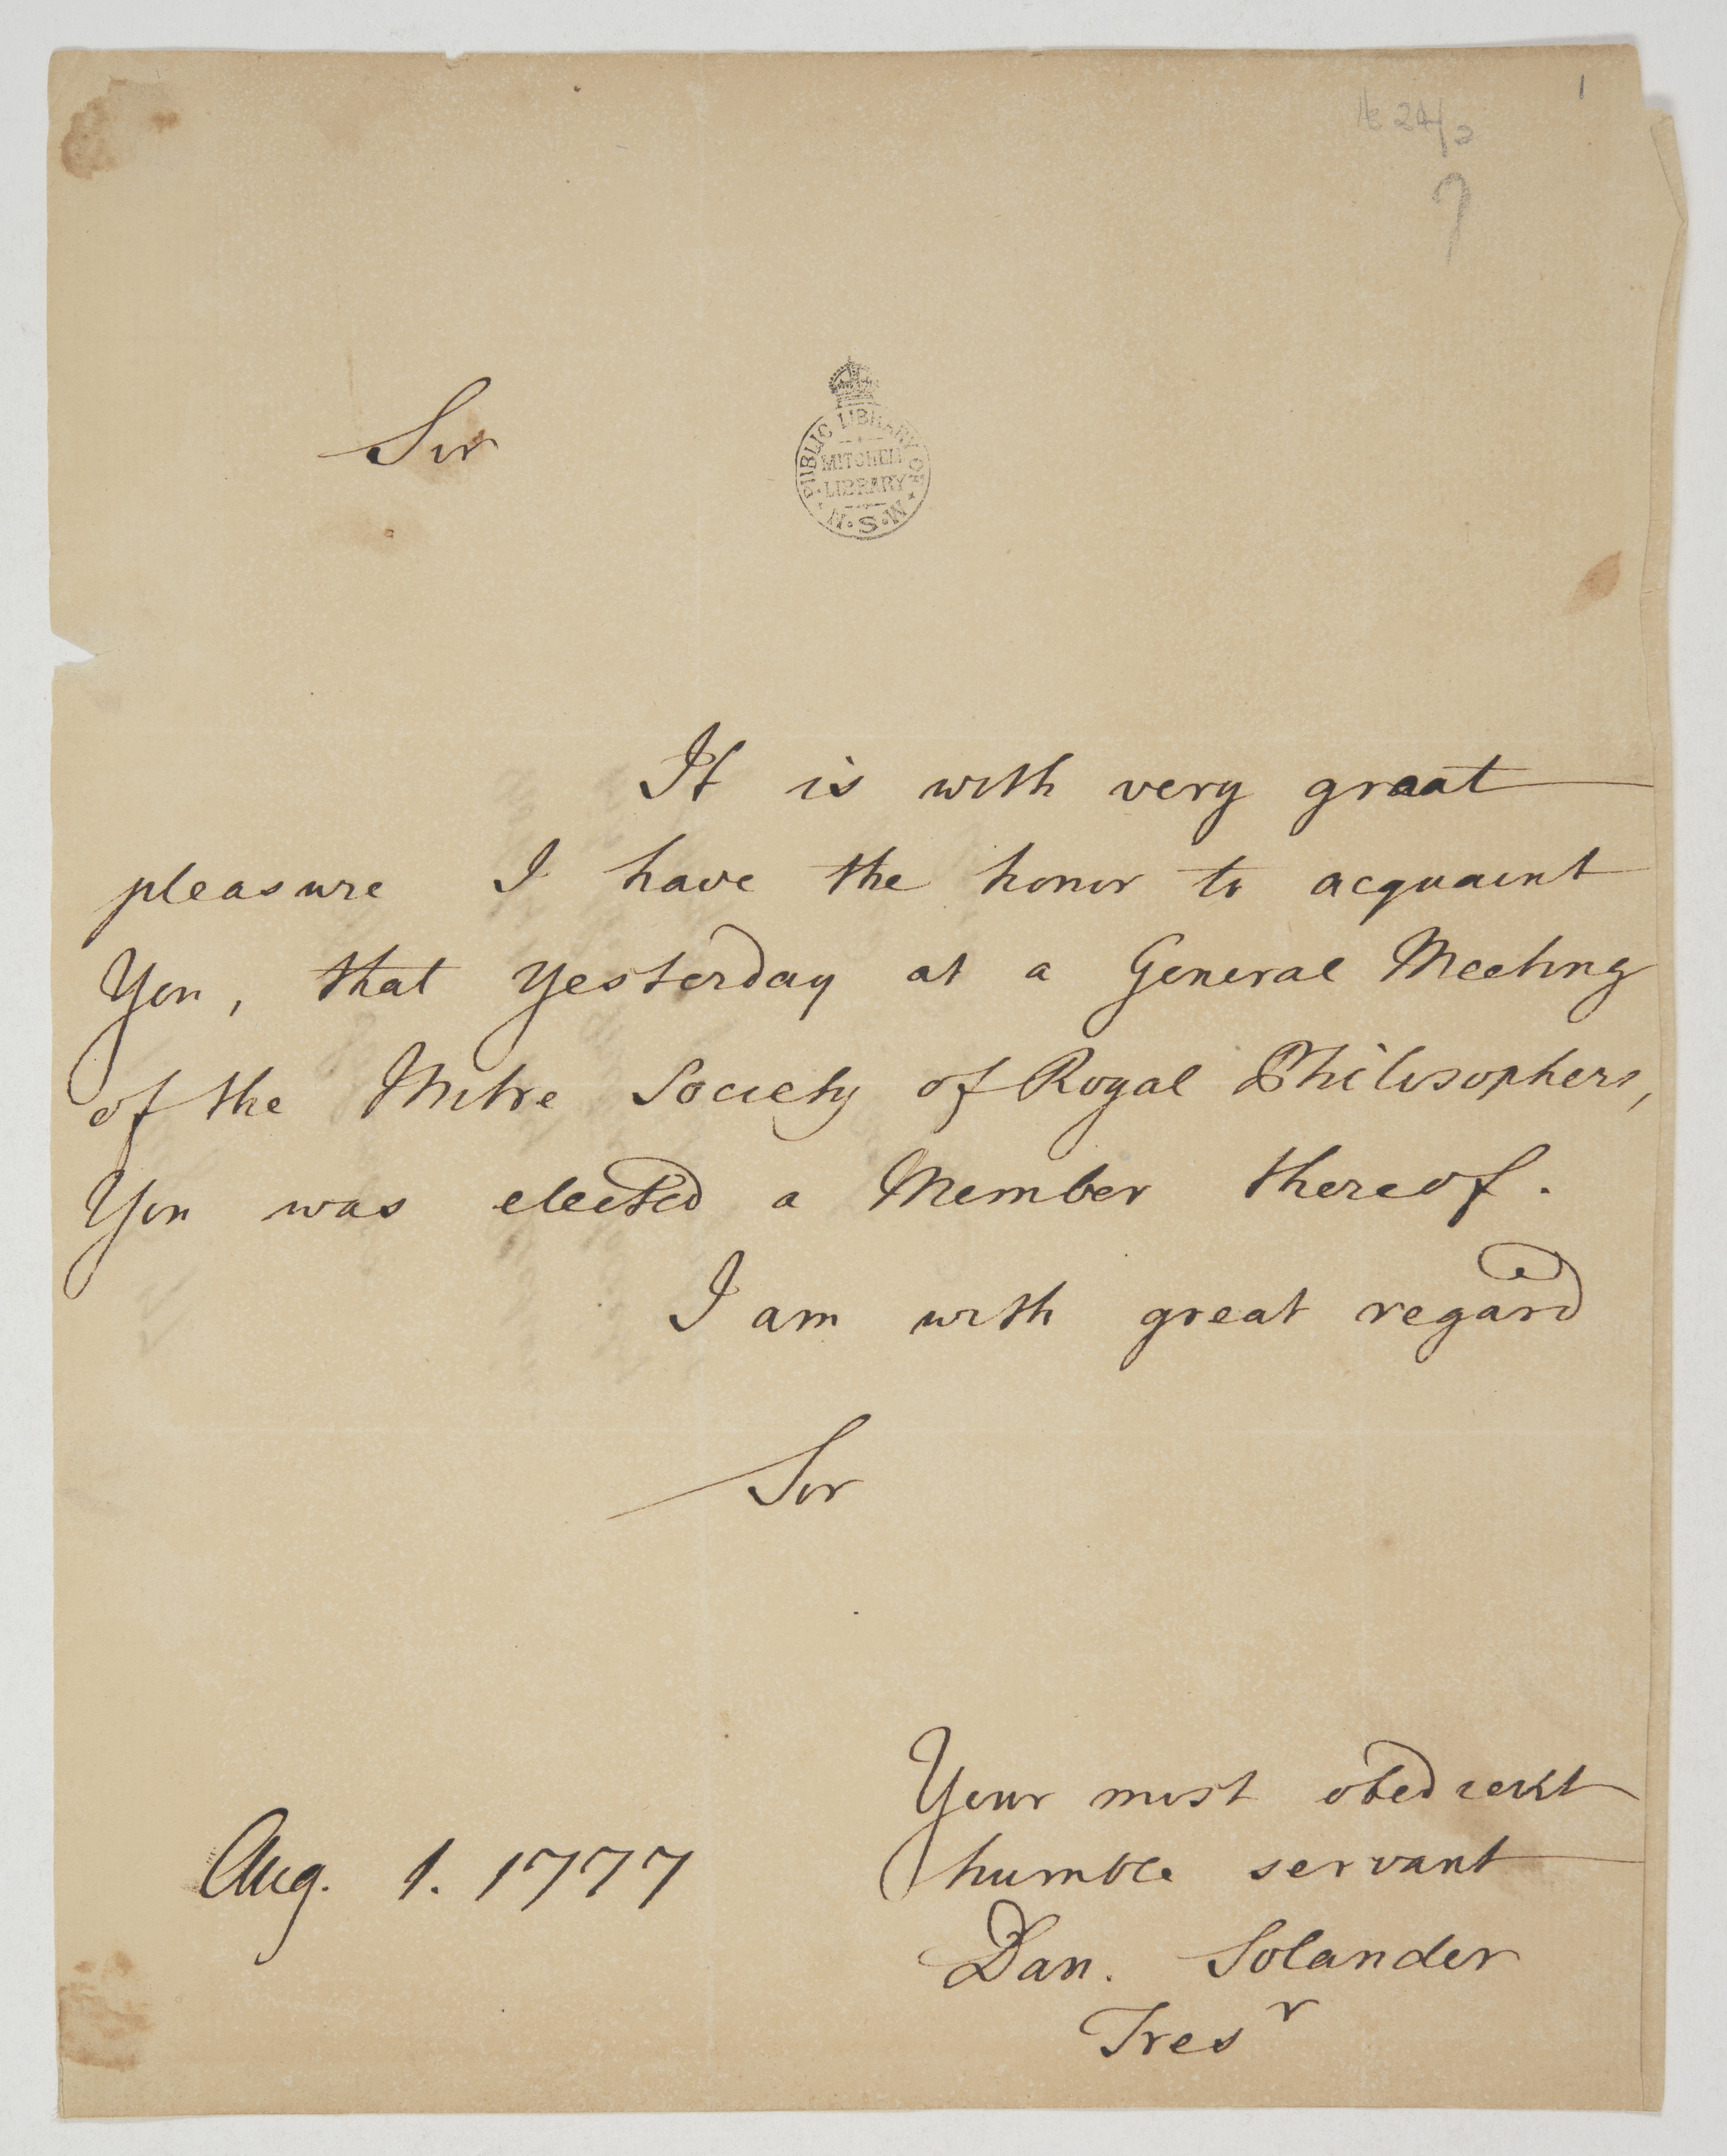 1
7
Sir
PUBLIC LIBRARY OF N.S.W.
MITCHELL
LIBRARY
It is with very great
pleasure I have the honor to acquaint
You, that yesterday at a General Meeting
of the Mitre Society of Royal Philosophers,
You was elected a Member thereof.
I am with great regard
Sir
Your most obedient
humble servant
Aug. 1. 1777
Dan. Solander
Tresr